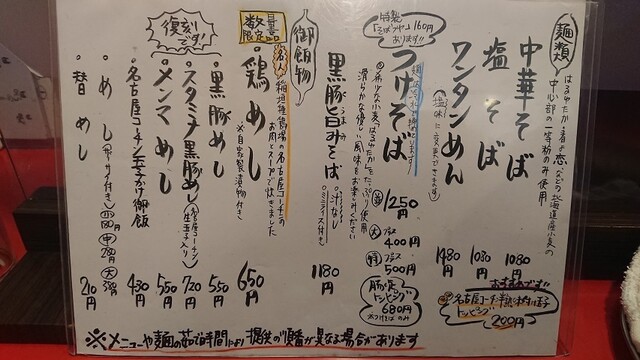 麺類
はるゆたか・春よ恋などの北海道産小麦の
中心部の一等粉のみ使用
中華そば 1080円
塩そば 1030円
ワンタンめん 1480円
(塩味に変更できます)
おすすめです!!
名古屋コーチン半熟味付玉子
トッピング 200円
特製
「そばツヤ」160円
あります!!
つけそば
麺は冷水で締めています
希少な小麦「はるゆたか」をたっぷり使用
滑らかな優しい風味をお楽しみください
並 1250円
大 プラス 400円
特 プラス 500円
トッピング
680円
黒豚旨みそば 1180円
汁なし
ミニライス付き
御飯物
数量限定品
名人
稲垣種鶏場の名古屋コーチンの
お肉とスープで炊きました
鶏めし 650円
※自家製漬物付き
黒豚めし 550円
スタミナ黒豚めし 720円
(名古屋コーチン生玉子入り)
復刻です!
メンマめし 550円
名古屋コーチン玉子かけ御飯 430円
めし
替めし 210円
※メニューや麺の茹で時間により提供の順番が異なる場合があります